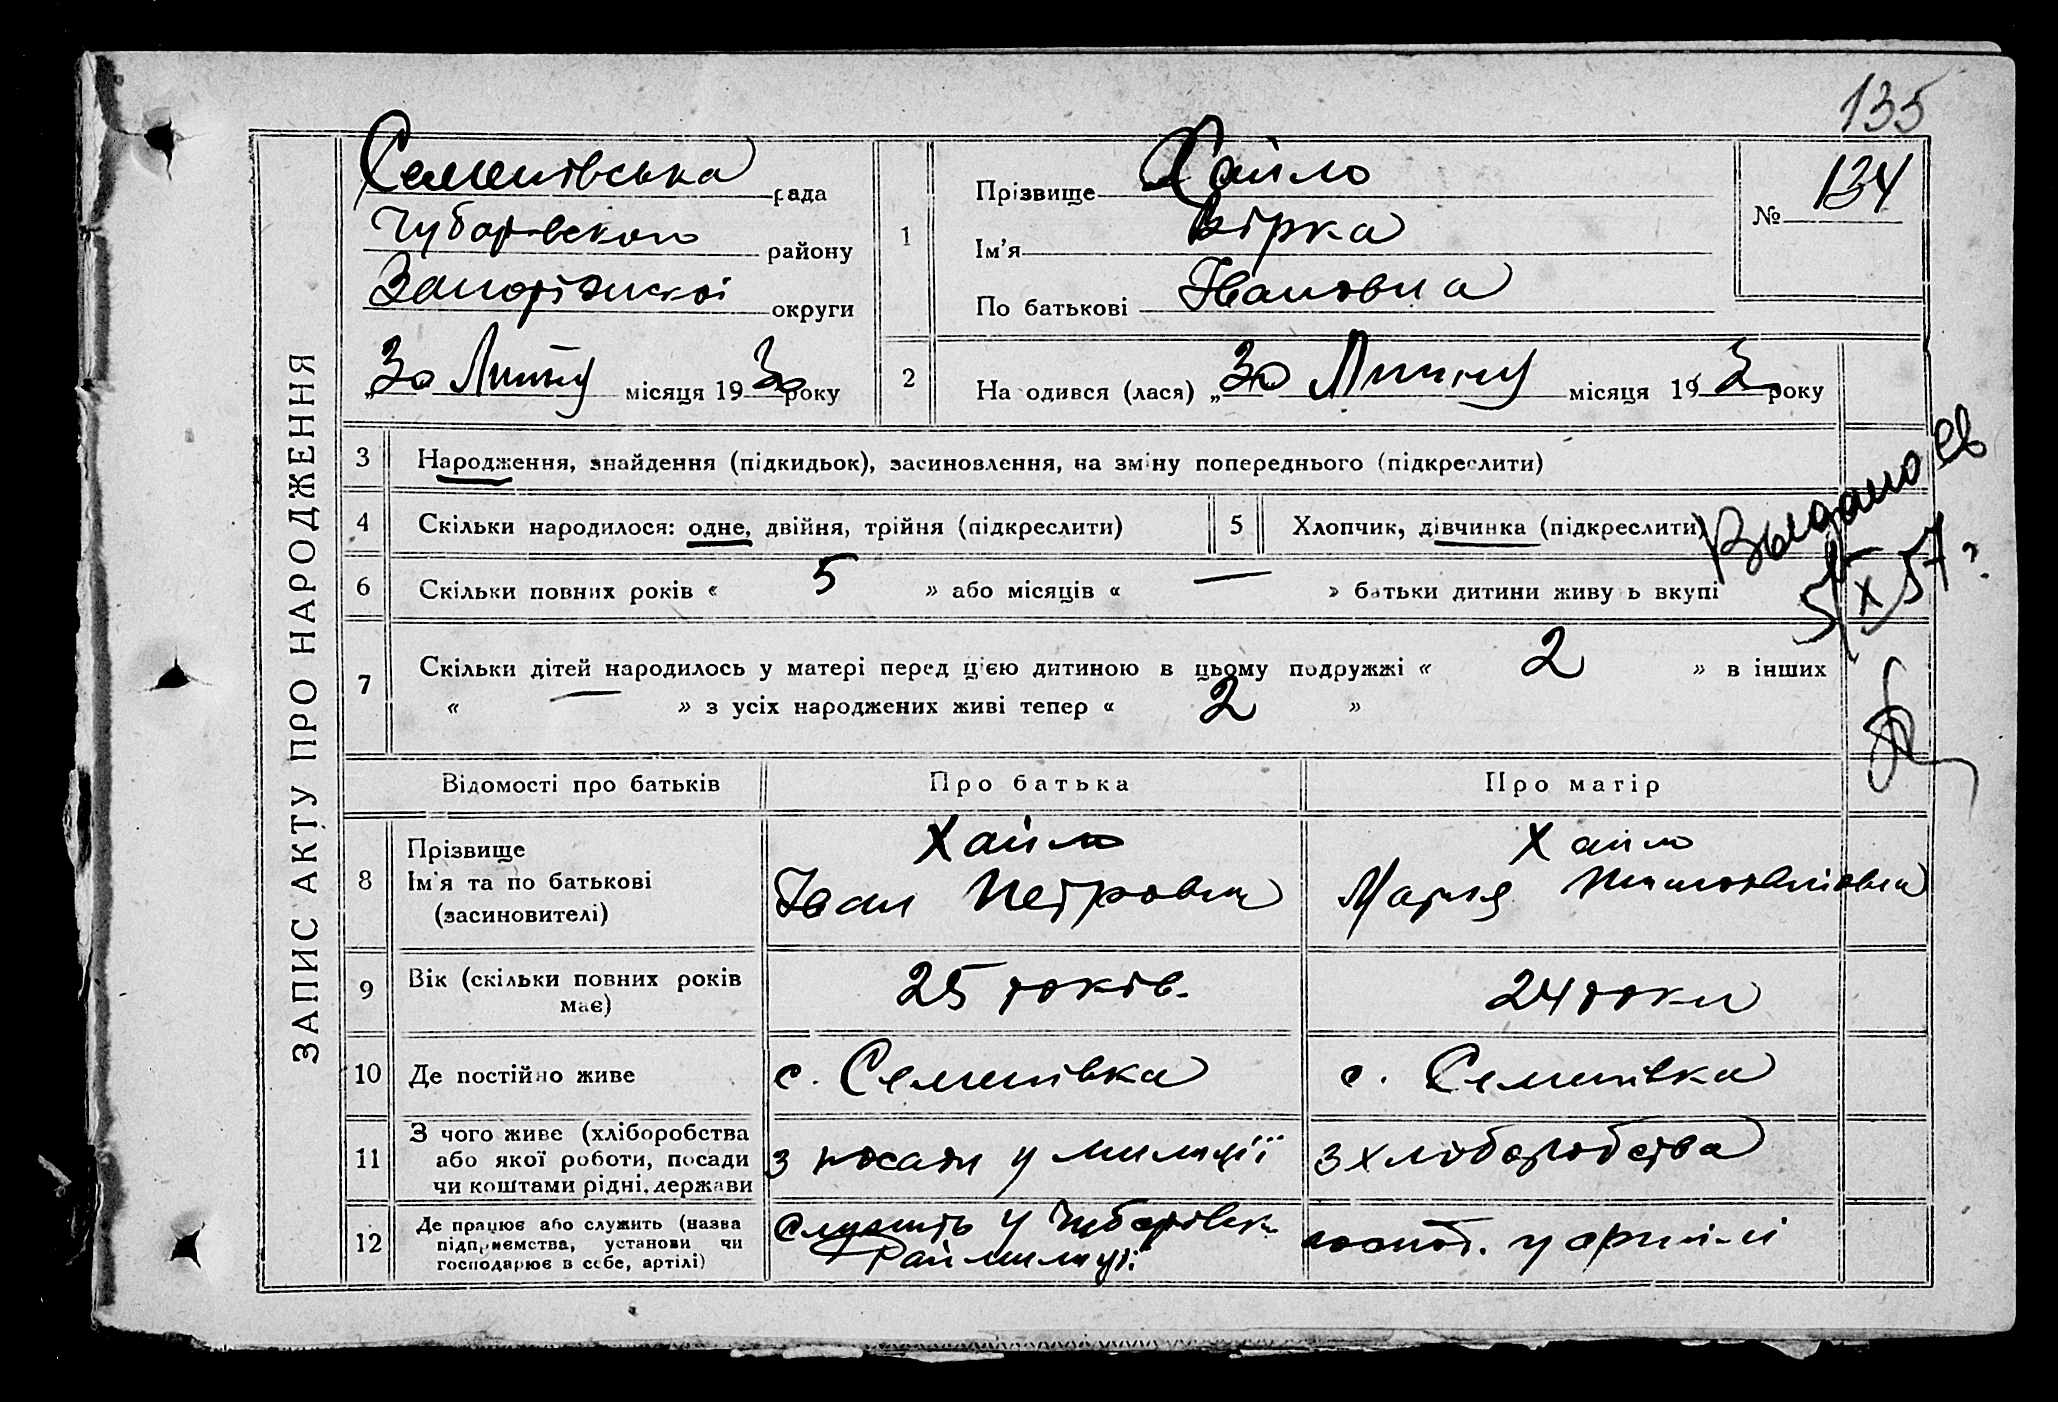 135
ЗАПИС АКТУ ПРО НАРОДЖЕННЯ
Семенівська рада
Чубарівського району
Запоріжської округи
„30 Липню місяця 1930 року
1
Прізвище Хайло
Ім’я Вірка
По батькові Івановна
№ 134
2
На одився (лася) „30 Липню місяця 193 року
3 Народження, знайдення (підкидьок), засиновлення, на зміну попереднього (підкреслити)
4 Скільки народилося: одне, двійня, трійня (підкреслити)
5 Хлопчик, дівчинка (підкреслити)
Выдано св
5/X 57 г.
6 Скільки повних років « 5 » або місяців « — » батьки дитини живу ь вкупі
7 Скільки дітей народилось у матері перед цією дитиною в цьому подружжі « 2 » в інших
« — » з усіх народжених живі тепер « 2 »
Відомості про батьків Про батька Про матір
8 Прізвище
Ім’я та по батькові
(засиновителі)
Хайло
Іван Петрович
Хайло
Марія
9 Вік (скільки повних років
має)
25 років.
24 роки
10 Де постійно живе
с. Семенівка
с. Семенівка
11 З чого живе (хліборобства
або якої роботи, посади
чи коштами рідні, держави
з посади у милиції
з хліборобства
12 Де працює або служить (назва
підприємства, установи чи
господарює в себе, артілі)
служить у Чубарівск.
Раймилиції
господ. у артілі